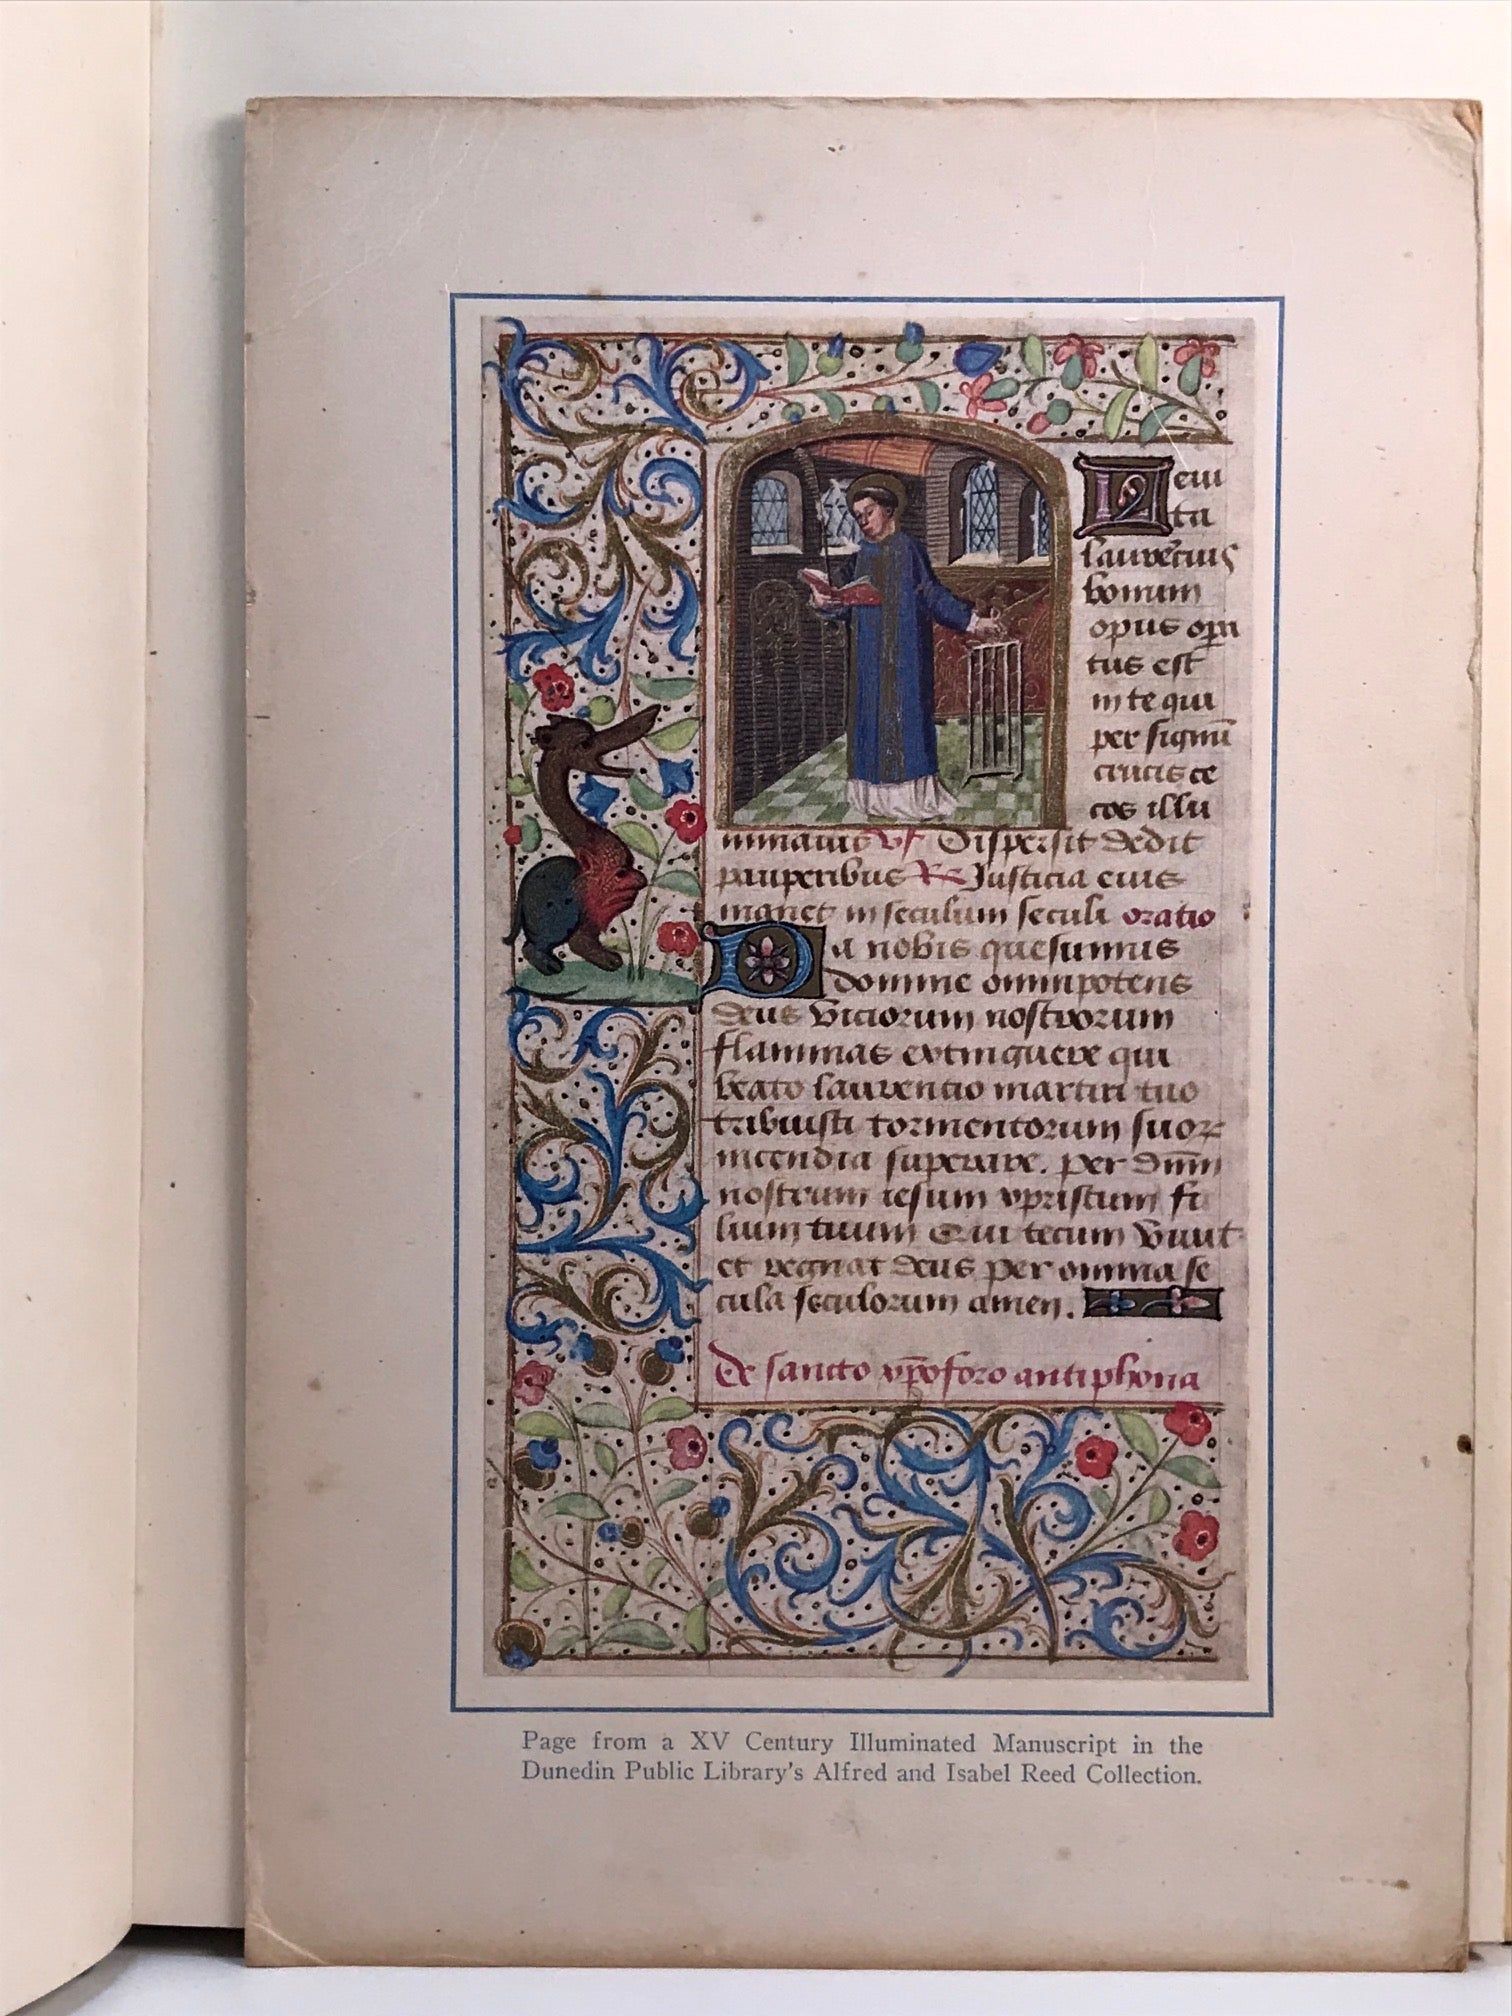 Leui
ta
laure͂cius
bonum
opus opa
tus est
in te qui
per signu͂
crucis ce
cos illu
minauit v̸ Dispersit dedit
pauperibus ℟ Justicia eius
manet in seculum seculi oratio
Da nobis quesumus
domine omnipotens
deus viciorum nostrorum
flammas extinguere qui
beato laurencio martiri tuo
tribuisti tormentorum suoꝝ
incendia superare. per dn͂m
nostrum iesum xpristum fi
lium tuum Qui tecum viuit
et regnat deus per omnia se
cula seculorum amen.
De sancto xp͂oforo antiphona
Page from a XV Century Illuminated Manuscript in the
Dunedin Public Library's Alfred and Isabel Reed Collection.